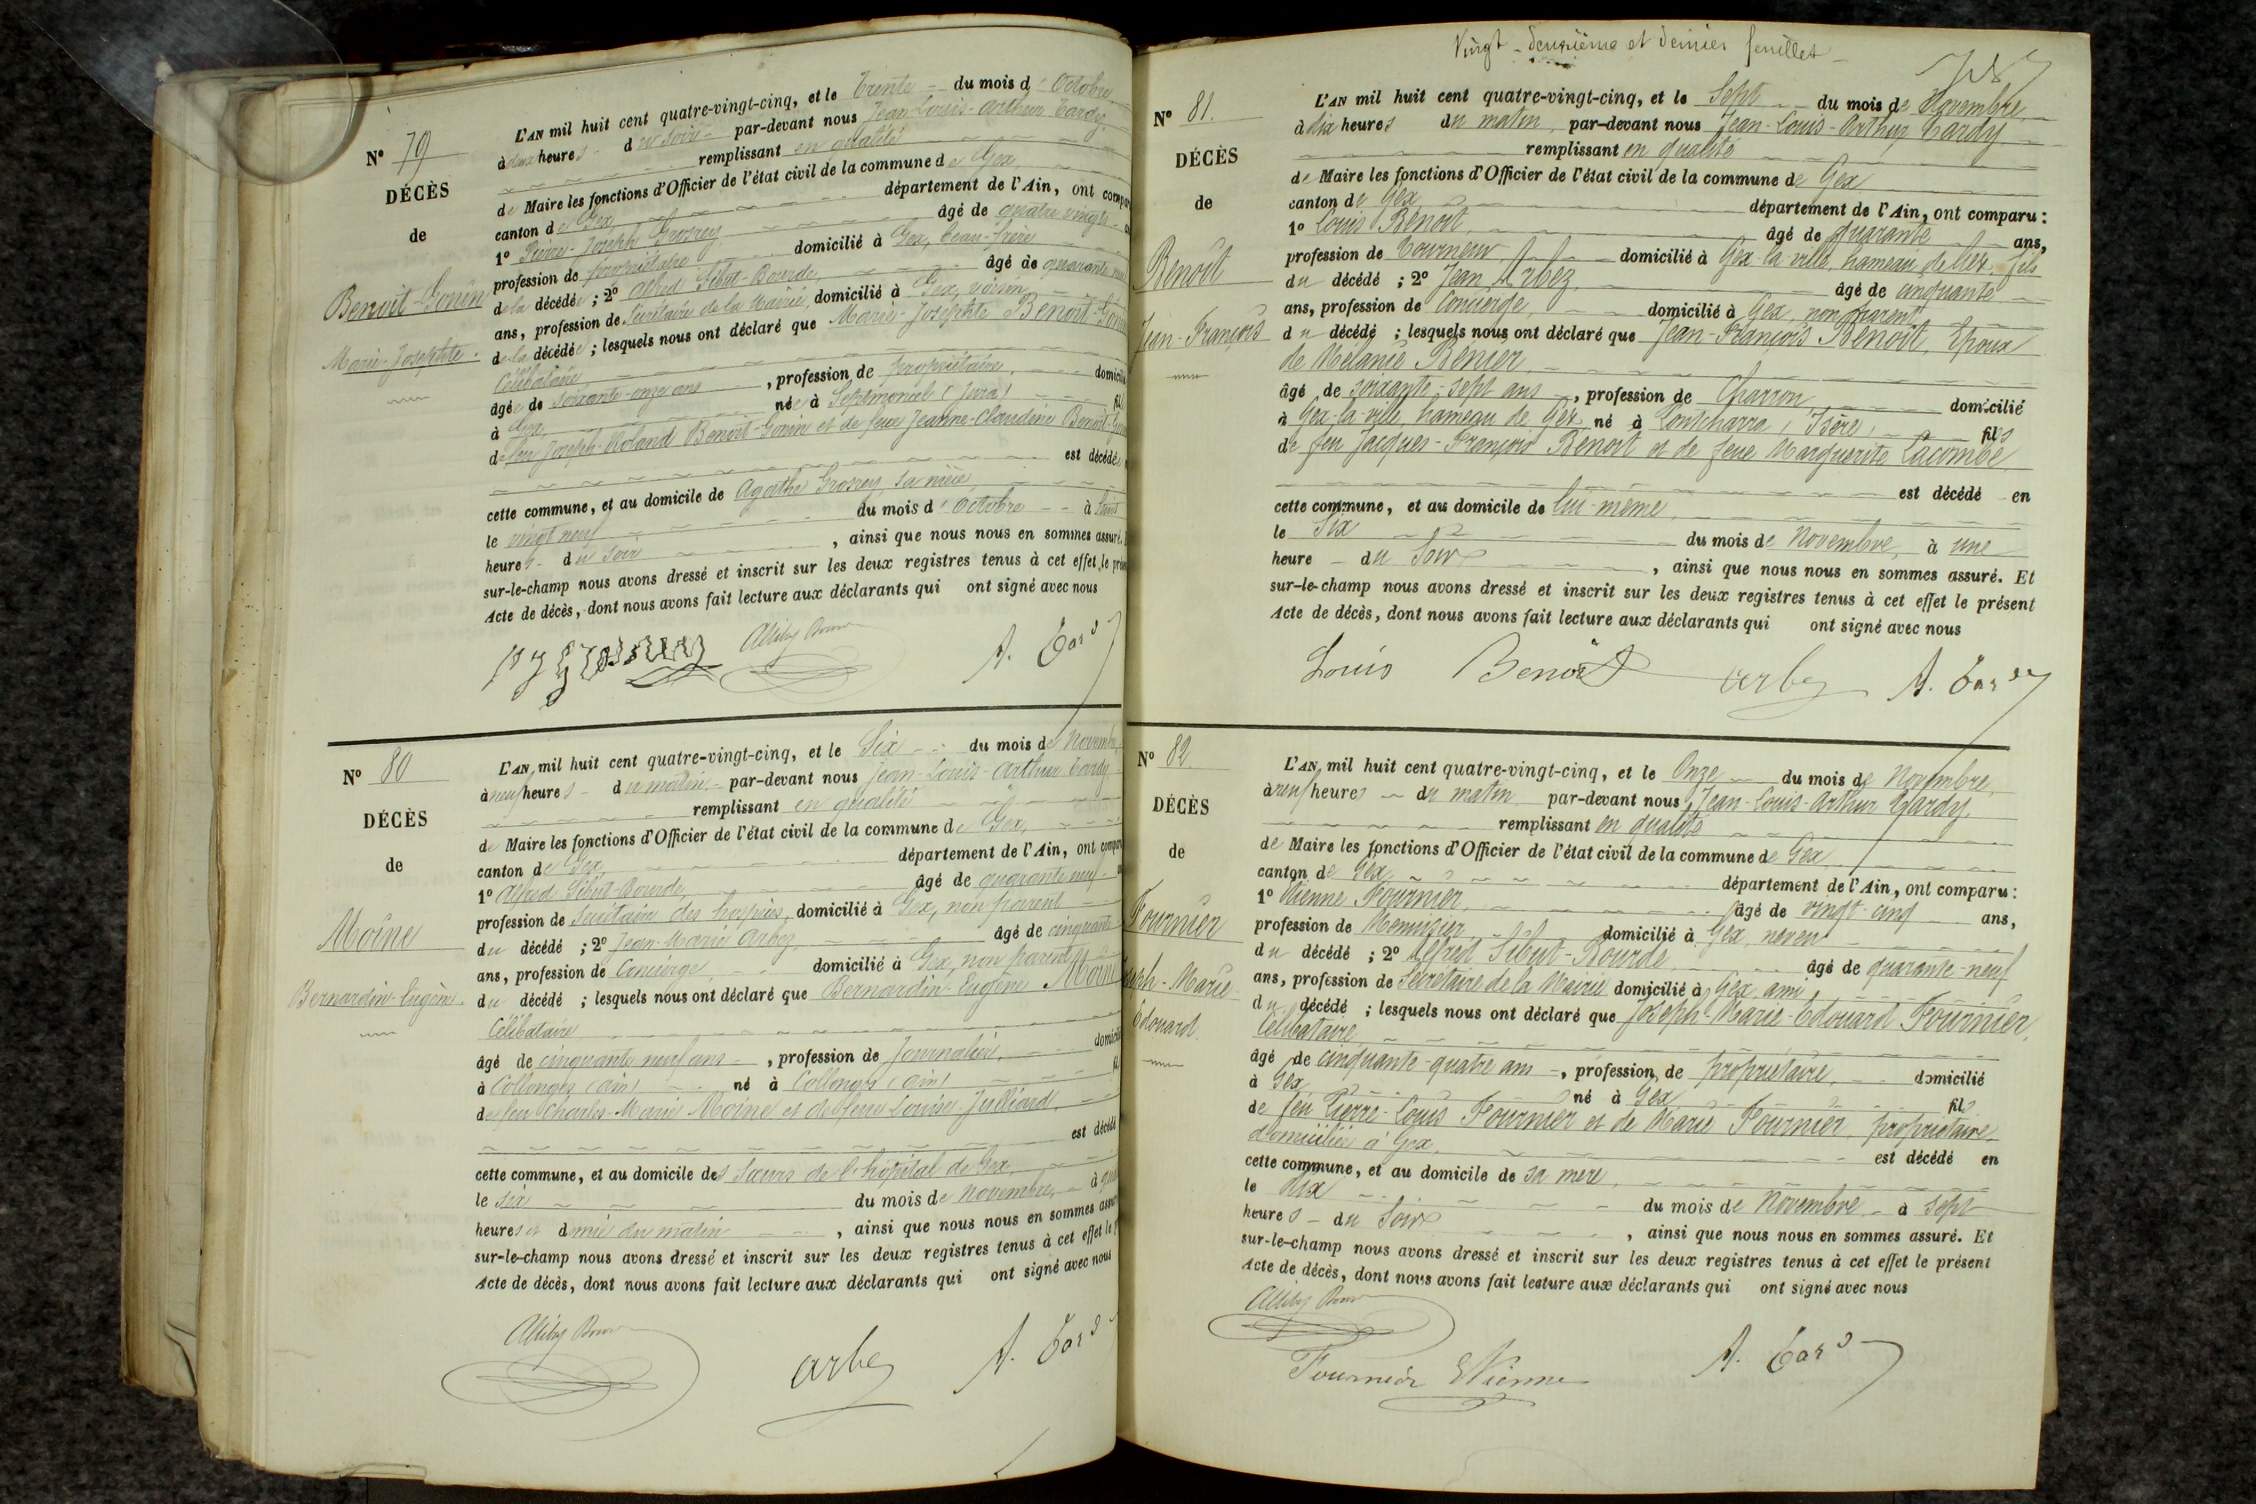 N° 79
DÉCÈS
de
Benoit-Gonin
Marie-Josephte.
L'AN mil huit cent quatre-vingt-cinq, et le Trente du mois d'Octobre
à deux heures du soir par-devant nous Jean-Louis-Arthur Tardy
remplissant en qualité
de Maire les fonctions d'Officier de l'état civil de la commune de Gex
canton de Gex, département de l'Ain, ont compar
1° Pierre-Joseph Grosrey âgé de quatre vingts
profession de propriétaire domicilié à Gex, beau-frère
de la décédée ; 2° Alfred Sibut-Bourde âgé de quarante neuf
ans, profession de Secrétaire de la Mairie, domicilié à Gex, voisin
de la décédée ; lesquels nous ont déclaré que Marie-Josephte Benoit-Gonin
Célibataire
âgée de soixante-onze ans, profession de propriétaire, domicilié
à Gex, née à Septmoncel (Jura) fil
de feu Joseph-Roland Benoit-Gonin et de feue Jeanne-Claudine Benoit-Gonin
est décédée
cette commune, et au domicile de Agathe Grosrey, sa nièce
le vingt neuf du mois d'Octobre à
heures du soir, ainsi que nous nous en sommes assuré.
sur-le-champ nous avons dressé et inscrit sur les deux registres tenus à cet effet le prés
Acte de décès, dont nous avons fait lecture aux déclarants qui ont signé avec nous
A. Tardy
N° 80
DÉCÈS
de
Moine
Bernardin-Eugène.
L'AN mil huit cent quatre-vingt-cinq, et le Six du mois de Novembre
à neuf heures du matin par-devant nous Jean-Louis-Arthur Tardy
remplissant en qualité
de Maire les fonctions d'Officier de l'état civil de la commune de Gex,
canton de Gex, département de l'Ain, ont compar
1° Alfred Sibut-Bourde, âgé de quarante neuf
profession de Secrétaire des hospices, domicilié à Gex, non parent
du décédé ; 2° Jean-Marie Arbez, âgé de cinquante
ans, profession de Concierge, domicilié à Gex, non parent
du décédé ; lesquels nous ont déclaré que Bernardin-Eugène Moine
Célibataire
âgé de cinquante neuf ans, profession de Journalier, domicilié
à Collonges (Ain) né à Collonges (Ain) fil
de feu Charles-Marie Moine et de feue Louise Julliard,
est décédé
cette commune, et au domicile des Sœurs de l'hôpital de Gex
le six du mois de Novembre, à
heures et demie du matin, ainsi que nous nous en sommes assuré
sur-le-champ nous avons dressé et inscrit sur les deux registres tenus à cet effet le p
Acte de décès, dont nous avons fait lecture aux déclarants qui ont signé avec nous
Arbez A. Tardy
Vingt-deuxième et dernier feuillet
N° 81.
DÉCÈS
de
Benoît
Jean-François
L'AN mil huit cent quatre-vingt-cinq, et le Sept du mois de Novembre,
à dix heures du matin, par-devant nous Jean-Louis-Arthur Tardy
remplissant en qualité
de Maire les fonctions d'Officier de l'état civil de la commune de Gex
canton de Gex, département de l'Ain, ont comparu :
1° Louis Benoît, âgé de quarante ans,
profession de Tourneur, domicilié à Gex-la-ville, hameau de Gex, fils
du décédé ; 2° Jean Arbez, âgé de cinquante
ans, profession de Concierge, domicilié à Gex, non parent
du décédé ; lesquels nous ont déclaré que Jean-François Benoît, Epoux
de Mélanie Bénier,
âgé de soixante-sept ans, profession de Charron, domicilié
à Gex-la-ville, hameau de Gex, né à Pontcharra (Isère) fils
de feu Jacques-François Benoit et de feue Marguerite Lacombe,
est décédé en
cette commune, et au domicile de lui-même,
le Six du mois de Novembre, à une
heure du Soir, ainsi que nous nous en sommes assuré. Et
sur-le-champ nous avons dressé et inscrit sur les deux registres tenus à cet effet le présent
Acte de décès, dont nous avons fait lecture aux déclarants qui ont signé avec nous
Louis Benoît Arbez A. Tardy
N° 82
DÉCÈS
de
Fournier
Joseph-Marie
Edouard
L'AN mil huit cent quatre-vingt-cinq, et le Onze du mois de Novembre,
à neuf heures du matin par-devant nous, Jean-Louis-Arthur Tardy,
remplissant en qualité
de Maire les fonctions d'Officier de l'état civil de la commune de Gex
canton de Gex, département de l'Ain, ont comparu :
1° Etienne Fournier, âgé de vingt-cinq ans,
profession de Menuisier, domicilié à Gex, neveu
du décédé ; 2° Alfred Sibut-Bourde, âgé de quarante-neuf
ans, profession de Secrétaire de la Mairie domicilié à Gex, ami
du décédé ; lesquels nous ont déclaré que Joseph-Marie-Edouard Fournier,
Célibataire
âgé de cinquante-quatre ans, profession de propriétaire, domicilié
à Gex né à Gex fils
de feu Pierre-Louis Fournier et de Marie Fournier, propriétaire,
domiciliée à Gex, est décédé en
cette commune, et au domicile de sa mère,
le dix du mois de Novembre à sept
heures du Soir, ainsi que nous nous en sommes assuré. Et
sur-le-champ nous avons dressé et inscrit sur les deux registres tenus à cet effet le présent
Acte de décès, dont nous avons fait lecture aux déclarants qui ont signé avec nous
Fournier Etienne A. Tardy